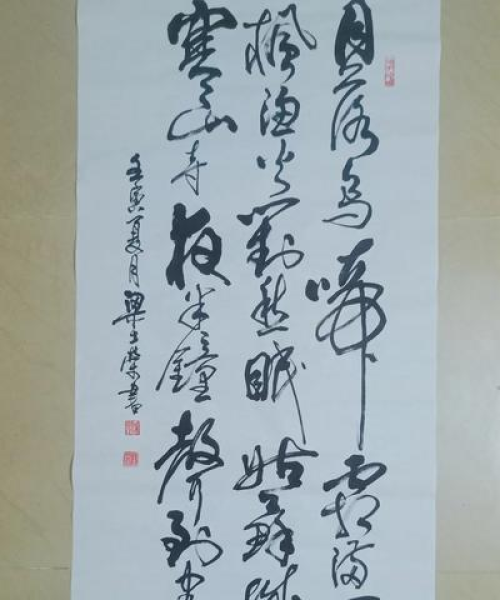 月落烏啼霜滿
楓漁火對愁眠姑蘇城
寒山寺夜半鐘聲到客
壬寅夏月梁士榮書